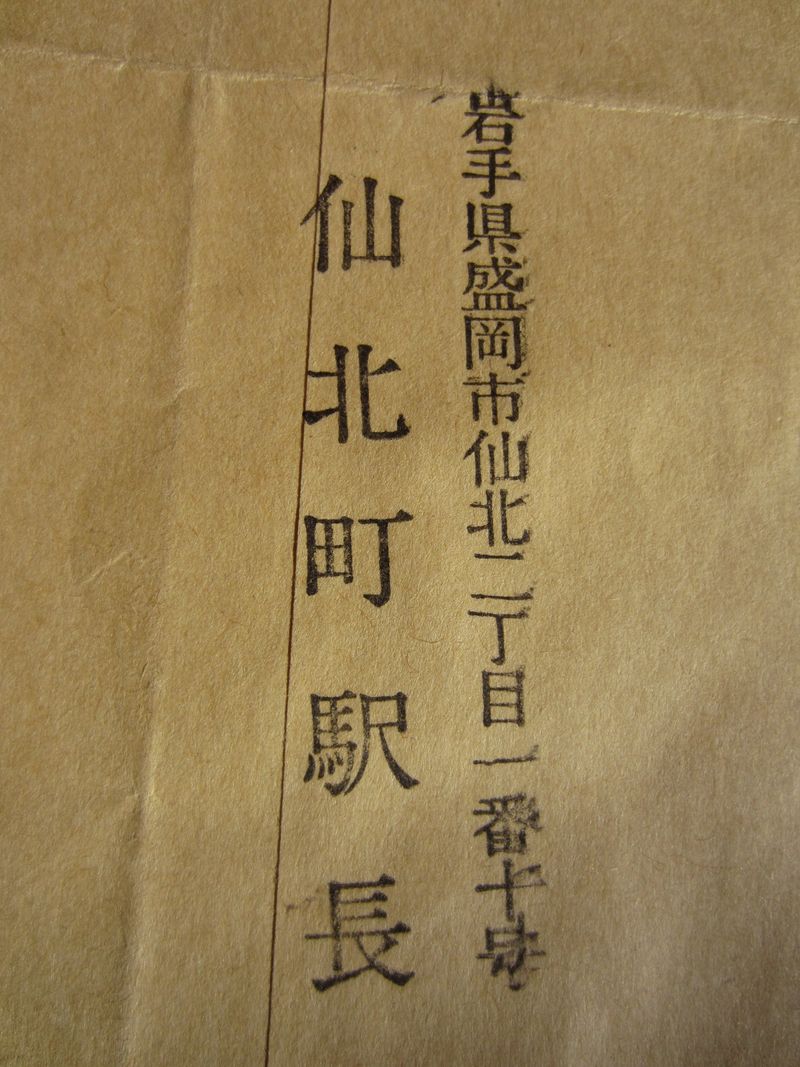 岩手県盛岡市仙北二丁目一番十号
仙北町駅長